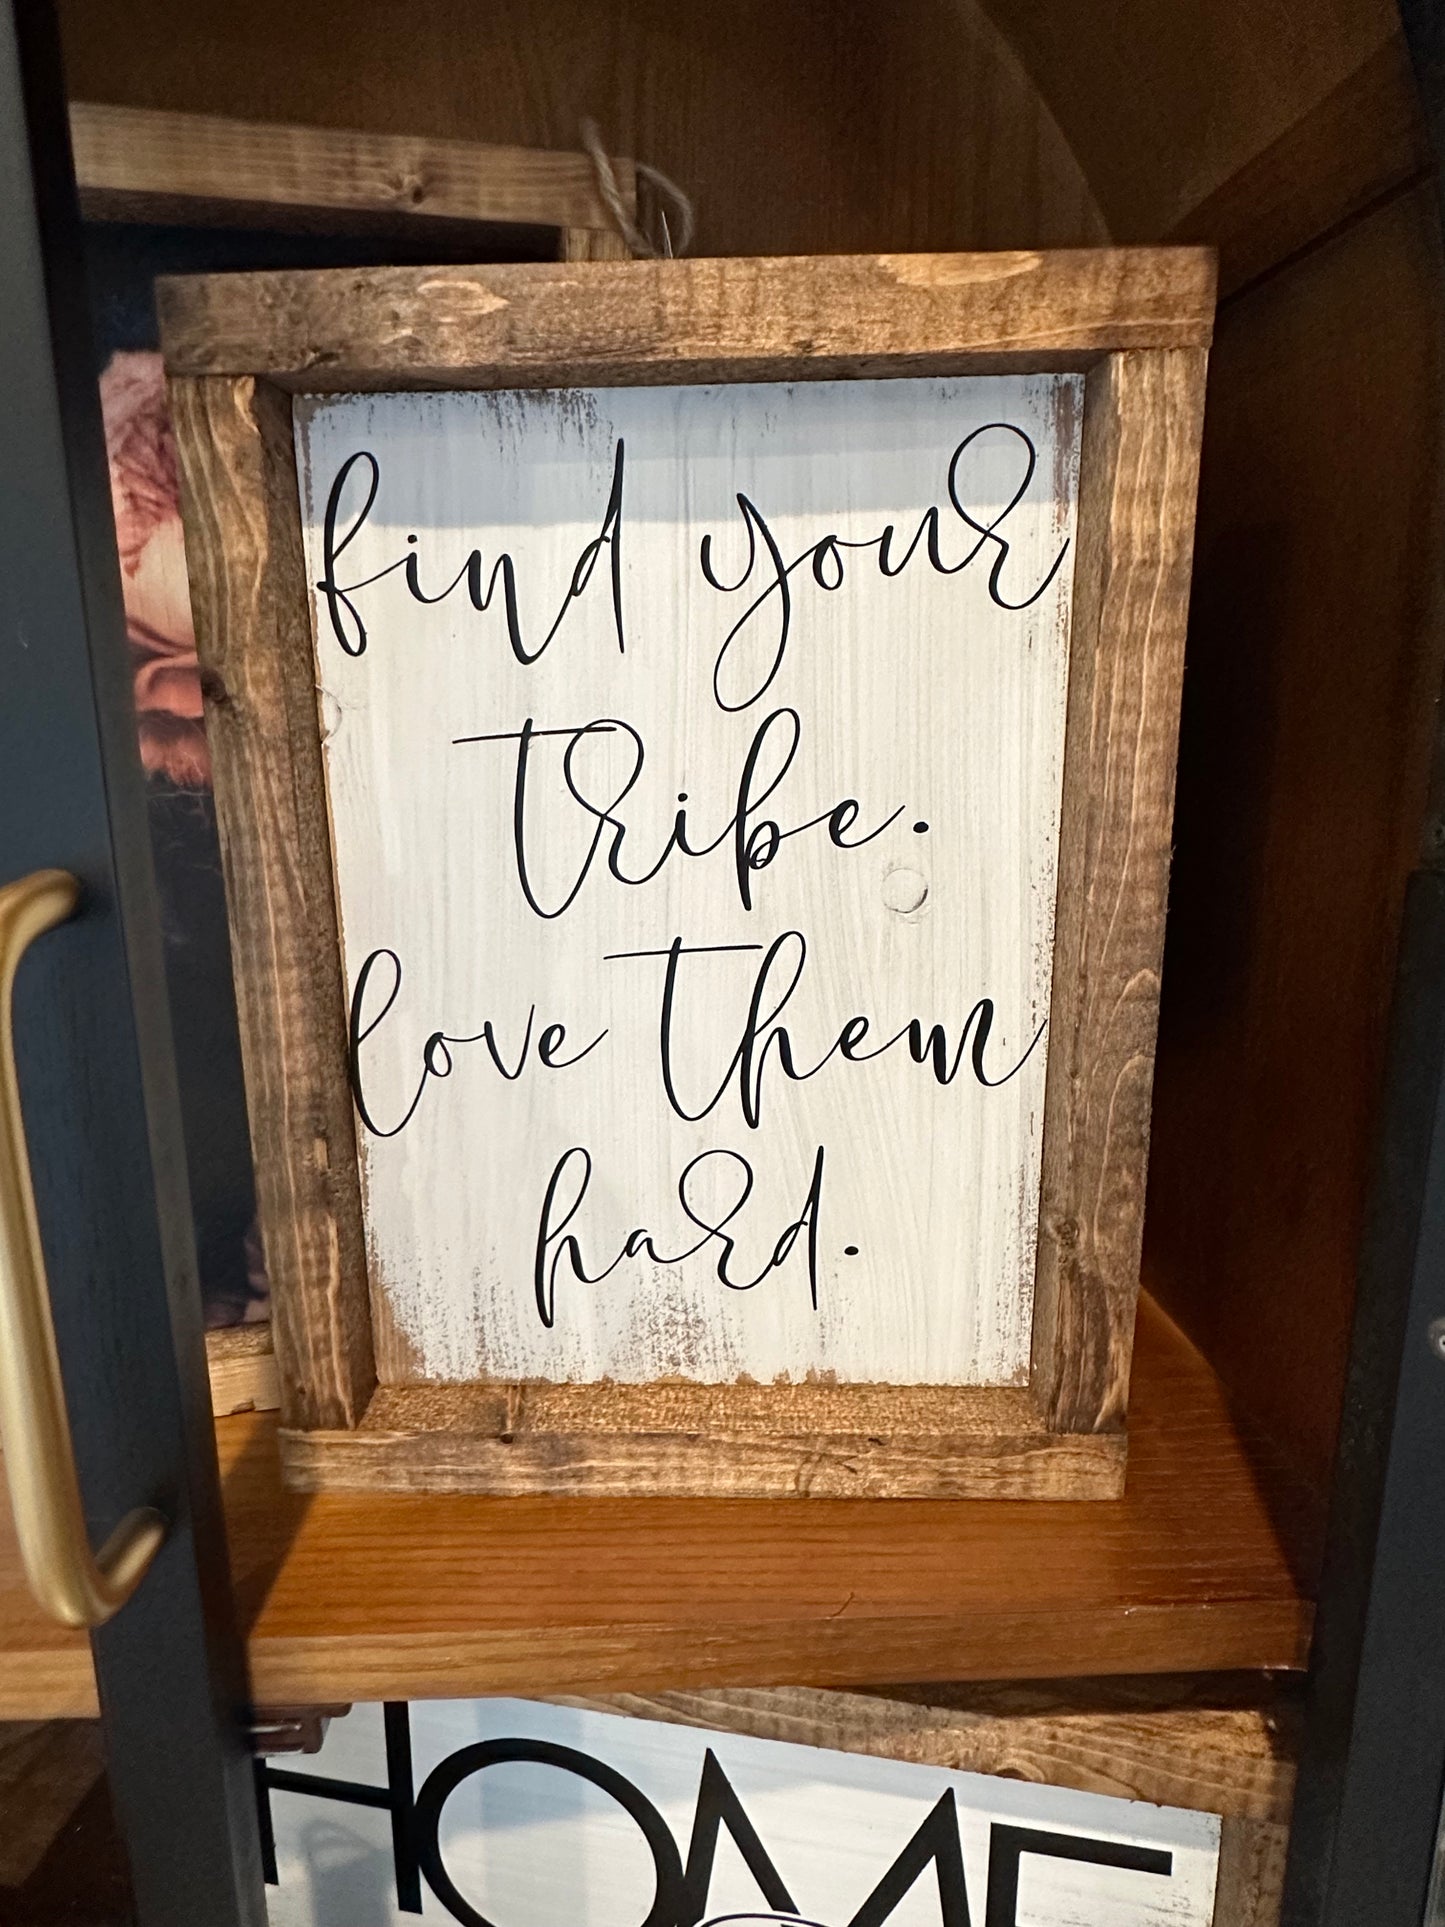 find your
tribe.
love them
hard.
HOME